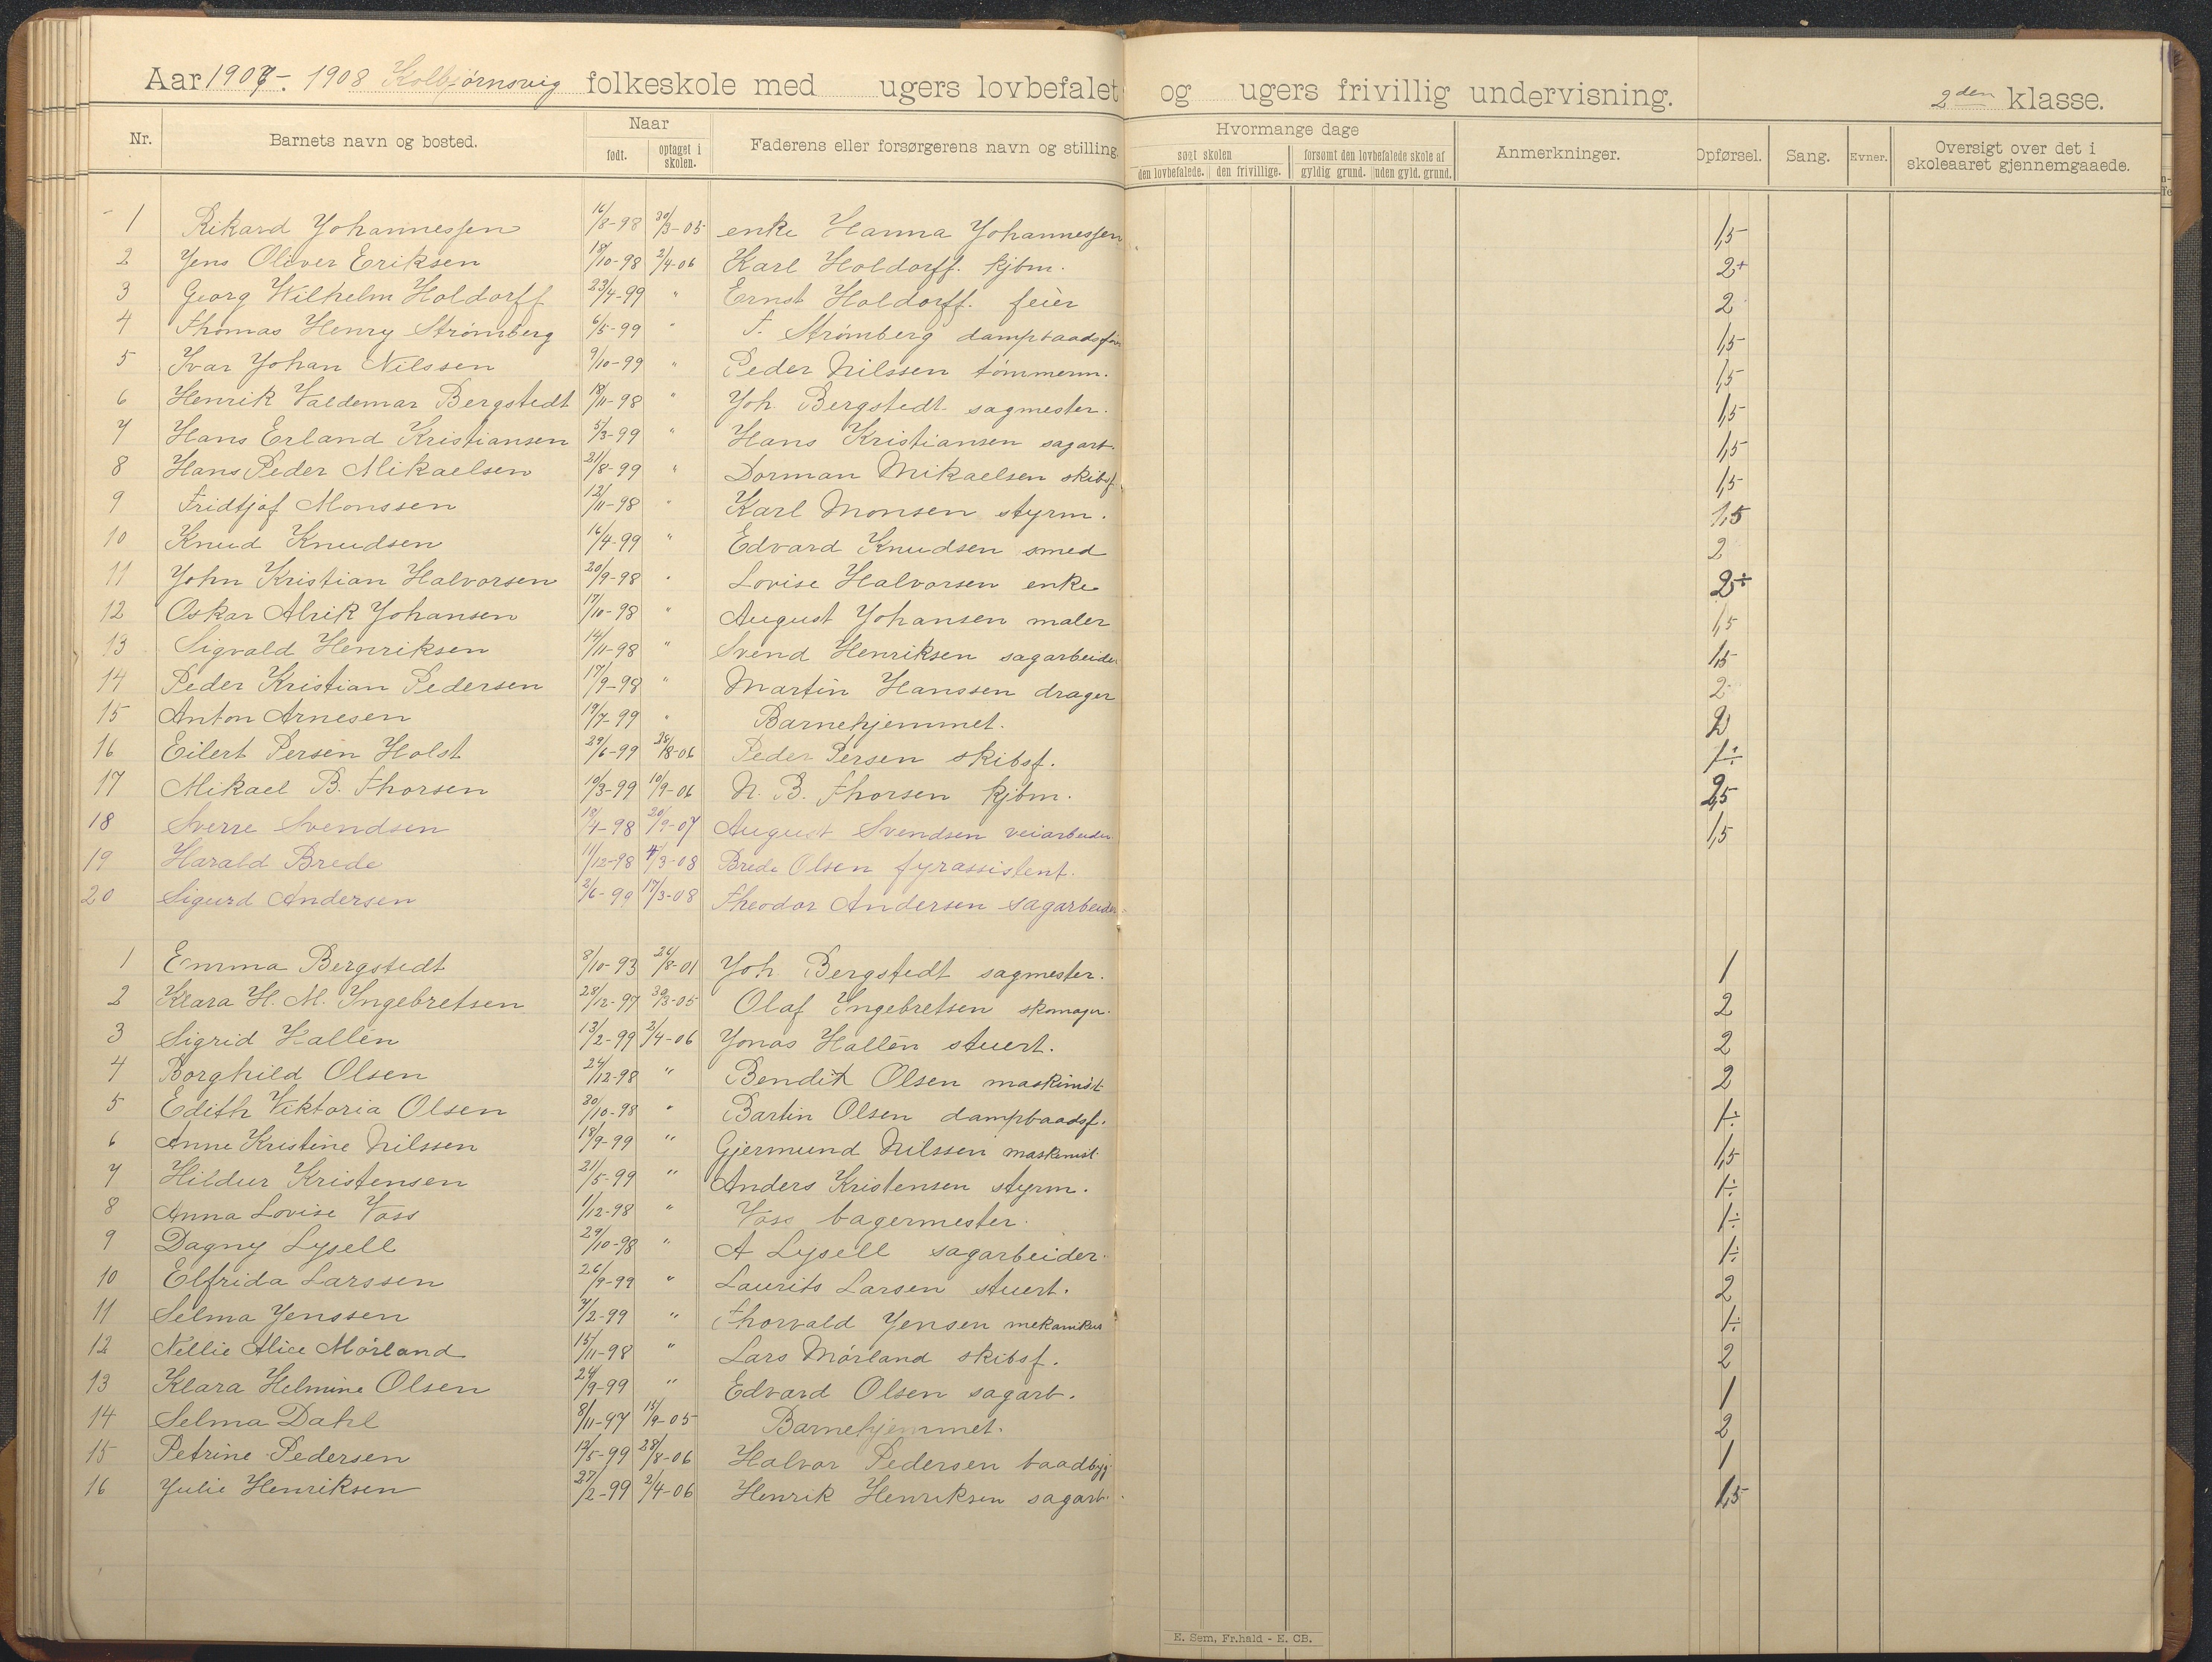 Aar 1907-1908 Kolbjørnsvig folkeskole med ugers lovbefalet og ugers frivillig undervisning. 2den klasse.
Nr. Barnets navn og bosted. Naar født. optaget i skolen. Faderens eller forsørgerens navn og stilling. Hvormange dage søgt skolen den lovbefalede. den frivillige. forsømt den lovbefalede skole af gyldig grund. uden gyld. grund. Anmerkninger. Opførsel. Sang. Evner. Oversigt over det i skoleaaret gjennemgaaede.
1 Rikard Johannessen 16/8-98 30/3-05 enke Hanna Johannessen 1,5
2 Jens Oliver Eriksen 18/10-98 2/4-06 Karl Holdorff. kjbm. 2+
3 Georg Wilhelm Holdorff 23/4-99 " Ernst Holdorff. feier 2
4 Thomas Henry Strømberg 6/5-99 " T. Strømberg 1,5
5 Ivar Johan Nilssen 9/10-99 " Peder Nilssen tømmerm. 1,5
6 Henrik Valdemar Bergstedt 18/11-98 " Joh. Bergstedt sagmester. 1,5
7 Hans Erland Kristiansen 5/3-99 " Hans Kristiansen sagarb. 1,5
8 Hans Peder Mikaelsen 21/8-99 " Dorman Mikaelsen skibsf. 1,5
9 Fridtjof Monssen 12/11-98 " Karl Monsen styrm. 1,5
10 Knud Knudsen 16/4-99 " Edvard Knudsen smed 2
11 John Kristian Halvorsen 20/9-98 " Lovise Halvorsen enke
12 Oskar Alrik Johansen 17/10-98 " August Johansen maler 1,5
13 Sigvald Henriksen 14/11-98 " Svend Henriksen sagarbeider 1,5
14 Peder Kristian Pedersen 17/9-98 " Martin Hanssen drager 2
15 Anton Arnesen 19/7-99 " Barnehjemmet. 2
16 Eilert Persen Holst 29/6-99 28/8-06 Peder Persen skibsf. 1÷
17 Mikael B. Thorsen 10/3-99 10/9-06 N. B. Thorsen kjbm. 2,5
18 Sverre Svendsen 18/4-98 20/9-07 August Svendsen veiarbeider 1,5
19 Harald Brede 11/12-98 4/3-08 Brede Olsen fyrassistent.
20 Sigurd Andersen 2/6-99 17/3-08 Theodor Andersen sagarbeider
1 Emma Bergstedt 8/10-93 26/8-01 Joh Bergstedt sagmester. 1
2 Klara H. M. Ingebretsen 28/12-97 30/3-05 Olaf Ingebretsen skomager. 2
3 Sigrid Hallén 13/2-99 2/4-06 Jonas Hallén stuert. 2
4 Borghild Olsen 24/12-98 " Bendik Olsen maskinist 2
5 Edith Viktoria Olsen 30/10-98 " Bartin Olsen dampbaadsf. 1÷
6 Anne Kristine Nilssen 18/9-99 " Gjermund Nilssen maskinist 1,5
7 Hildur Kristensen 21/5-99 " Anders Kristensen styrm. 1÷
8 Anna Lovise Vass 1/12-98 " Vass bagermester. 1÷
9 Dagny Lysell 29/10-98 " A Lysell sagarbeider. 1÷
10 Elfrida Larssen 26/9-99 " Laurits Larsen stuert. 2
11 Selma Jenssen 7/2-99 " Thorvald Jensen mekaniker 1÷
12 Nellie Alice Mörland 15/11-98 " Lars Mörland skibsf. 2
13 Klara Helmine Olsen 24/9-99 " Edvard Olsen sagarb. 1
14 Selma Dahl 8/11-97 15/9-05 Barnehjemmet. 2
15 Petrine Pedersen 12/5-99 28/8-06 Halvor Pedersen baadbyg. 1
16 Julie Henriksen 27/2-99 2/4-06 Henrik Henriksen sagarb. 1,5
E. Sem, Fr.hald - E. CB.